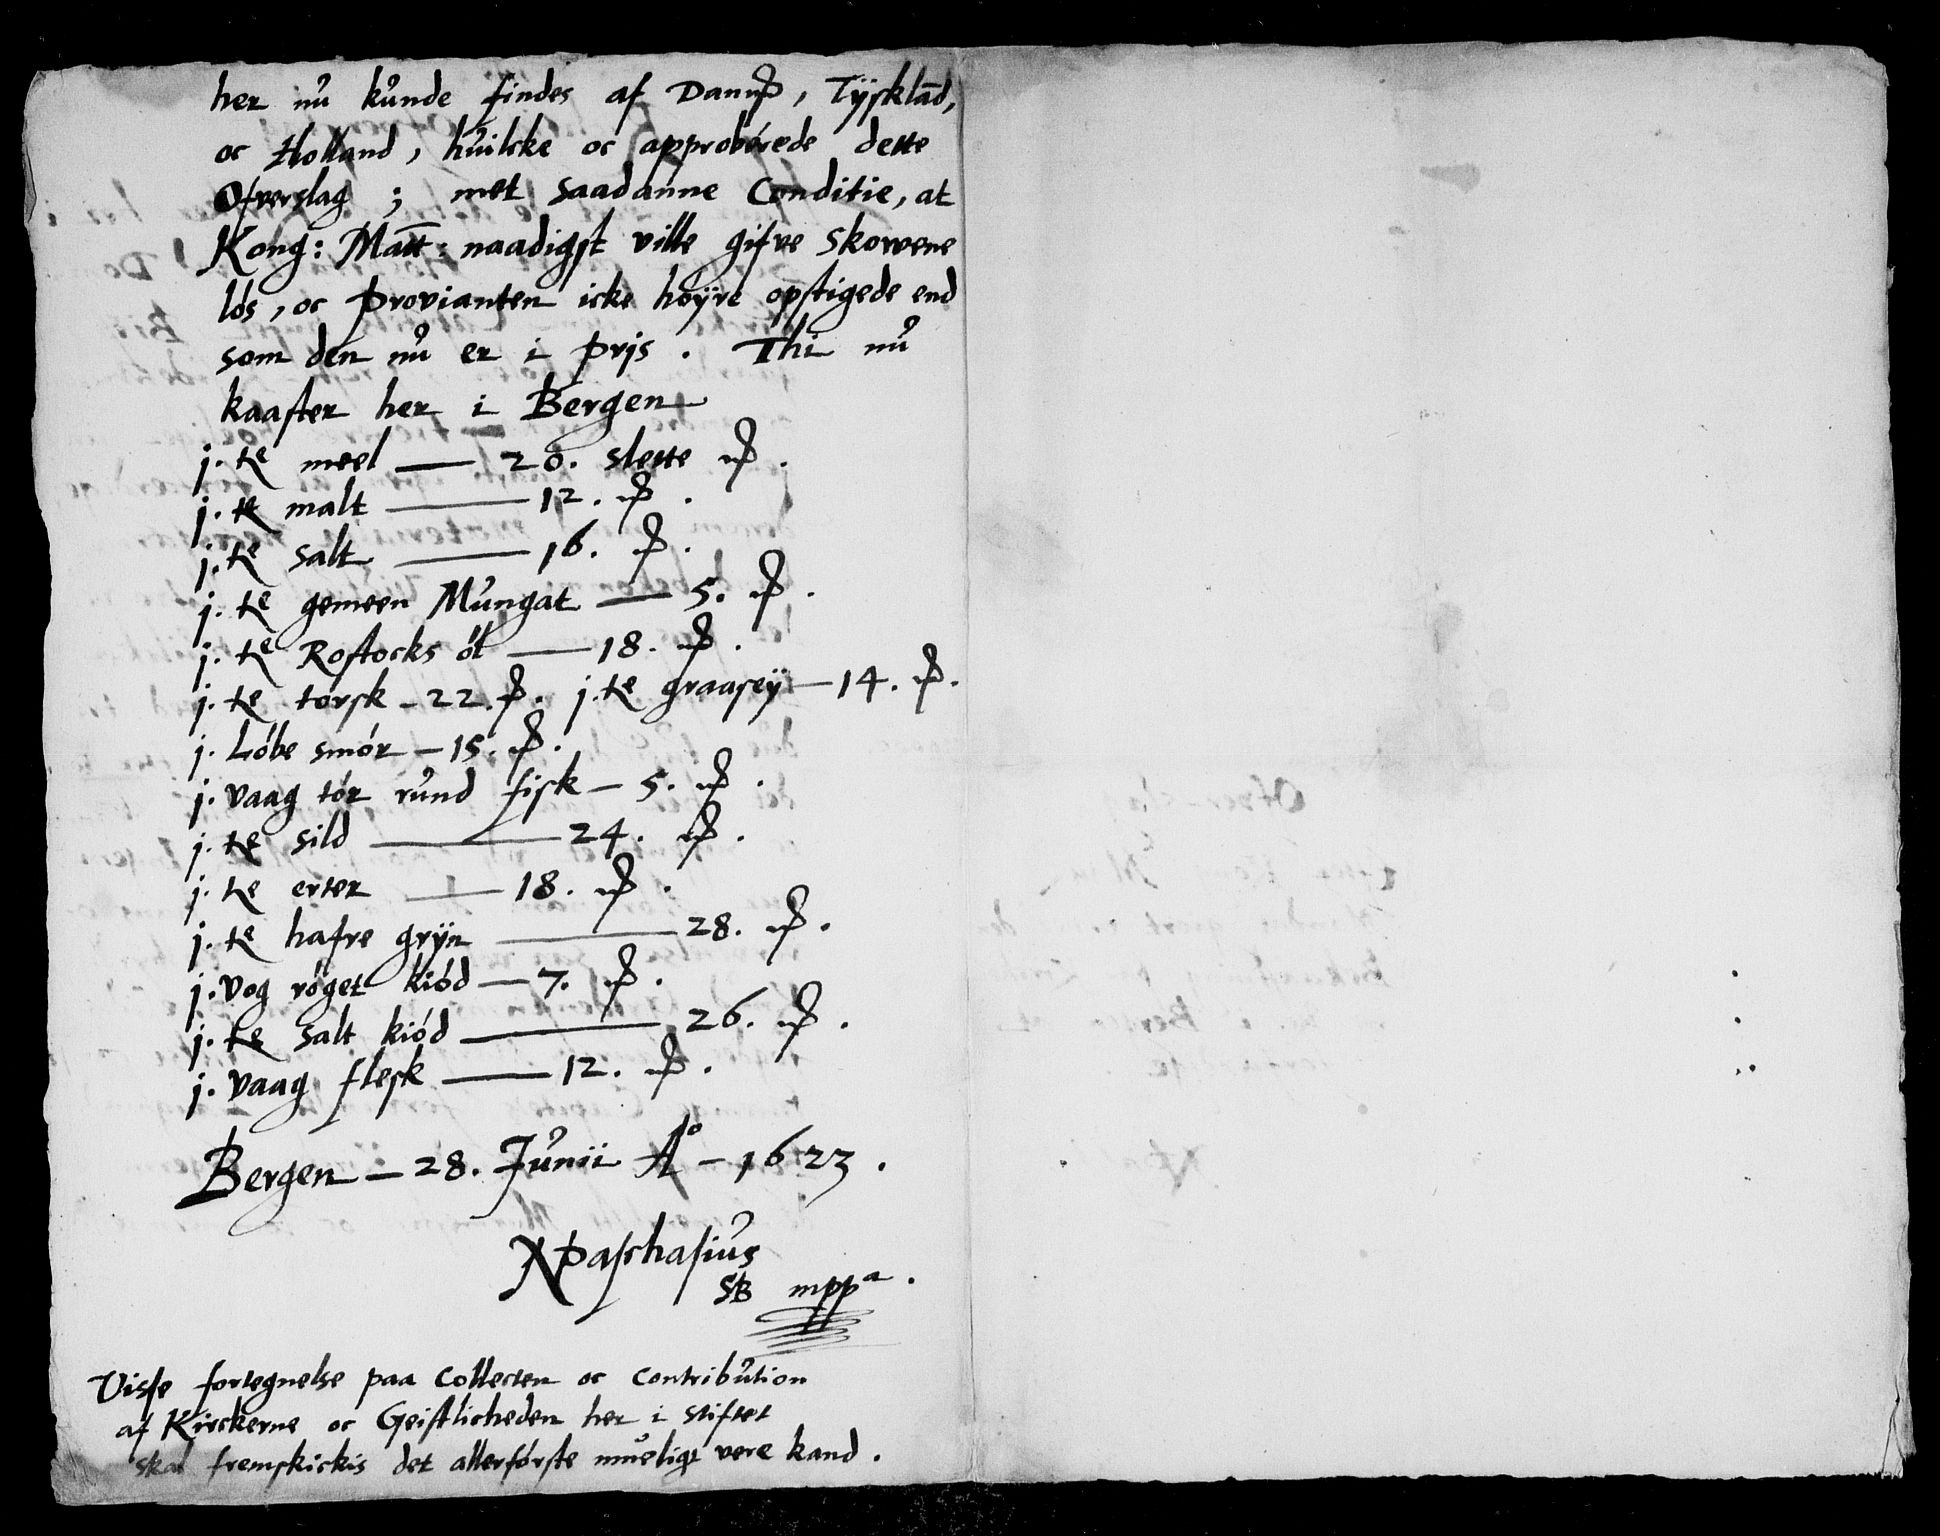 her nů kůnde findes af Danṣk, Tÿsklād,
oc Holland, hůilcke oc approbérede dette
Ofverslag ; met saadanne Conditie, at
Kong: Matt: naadigst ville gifve skowene
lós, oc provianten icke hóÿre opstigede end
som den nů er i prjs. Thi nů
kaaster her i Bergen
j. te meel — 20. slette
j. te malt — 12.
j. te salt — 16.
j. te gemeen Můngat — 5.
j. te Rostocks ól — 18.
j. te torsk — 22. j. te graasey — 14.
j. Lóbe smór — 15.
j. vaag tór růnd fisk — 5.
j. te sild — 24.
j. te erter — 18.
j. te hafre grÿn — 28.
j. vog róget kiód — 7.
j. te salt kiód — 26.
j. vaag flesk — 12.
Bergen — 28. Jůnii Aº — 1623.
NPaschasiůs
SB mppa.
Visse fortegnelse paa Collecten oc contribůtion
af Kirckerne oc Geistlicheden her i stiftet
skal fremskickis det allerfórste můeligt vere kand.